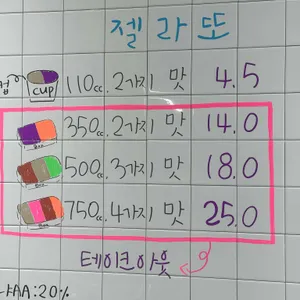 젤라또
컵 cup 110cc. 2가지 맛 4.5
350cc. 2가지 맛 14.0
500cc. 3가지 맛 18.0
750cc. 4가지 맛 25.0
테이크아웃
AA:20%